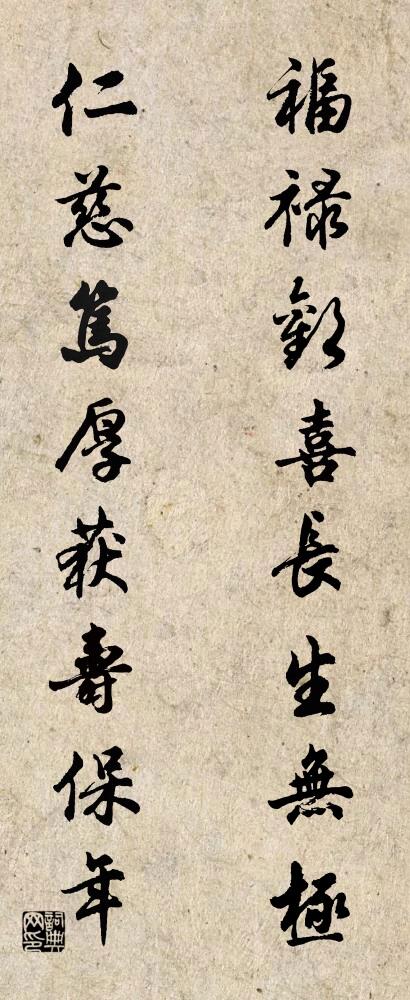 福禄歡喜長生無極
仁慈篤厚获壽保年
詞典网印